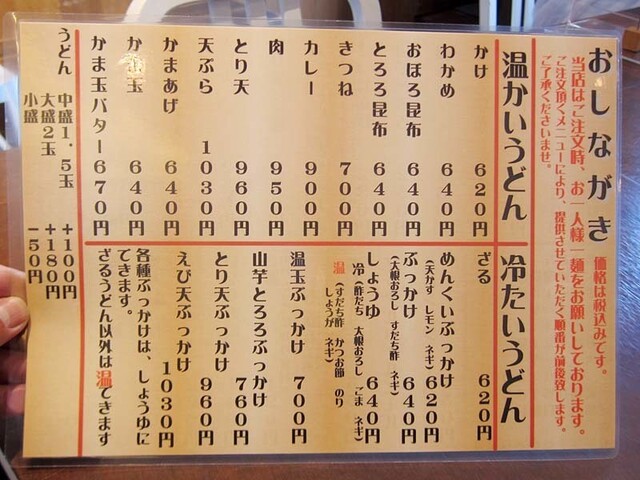 おしながき
価格は税込みです。
当店はご注文時、お一人様一麺をお願いしております。
ご注文頂くメニューにより、提供させていただく順番が前後致します。
ご了承くださいませ。
温かいうどん
かけ 620円
わかめ 640円
おぼろ昆布 640円
とろろ昆布 640円
きつね 700円
カレー 900円
肉 950円
とり天 960円
天ぷら 1030円
かまあげ 640円
玉 640円
かま玉バター 670円
うどん 中盛1.5玉 +100円
大盛2玉 +180円
小盛 -50円
冷たいうどん
ざる 620円
めんくいぶっかけ 620円
(天かす レモン ネギ)
ぶっかけ 640円
(大根おろし すだち酢 ネギ)
しょうゆ 640円
冷 (酢だち 大根おろし ごま ネギ)
温 (すだち酢 かつお節 のり
しょうが ネギ)
温玉ぶっかけ 700円
山芋とろろぶっかけ 760円
とり天ぶっかけ 960円
えび天ぶっかけ 1030円
各種ぶっかけは、しょうゆに
できます。
ざるうどん以外は温できます